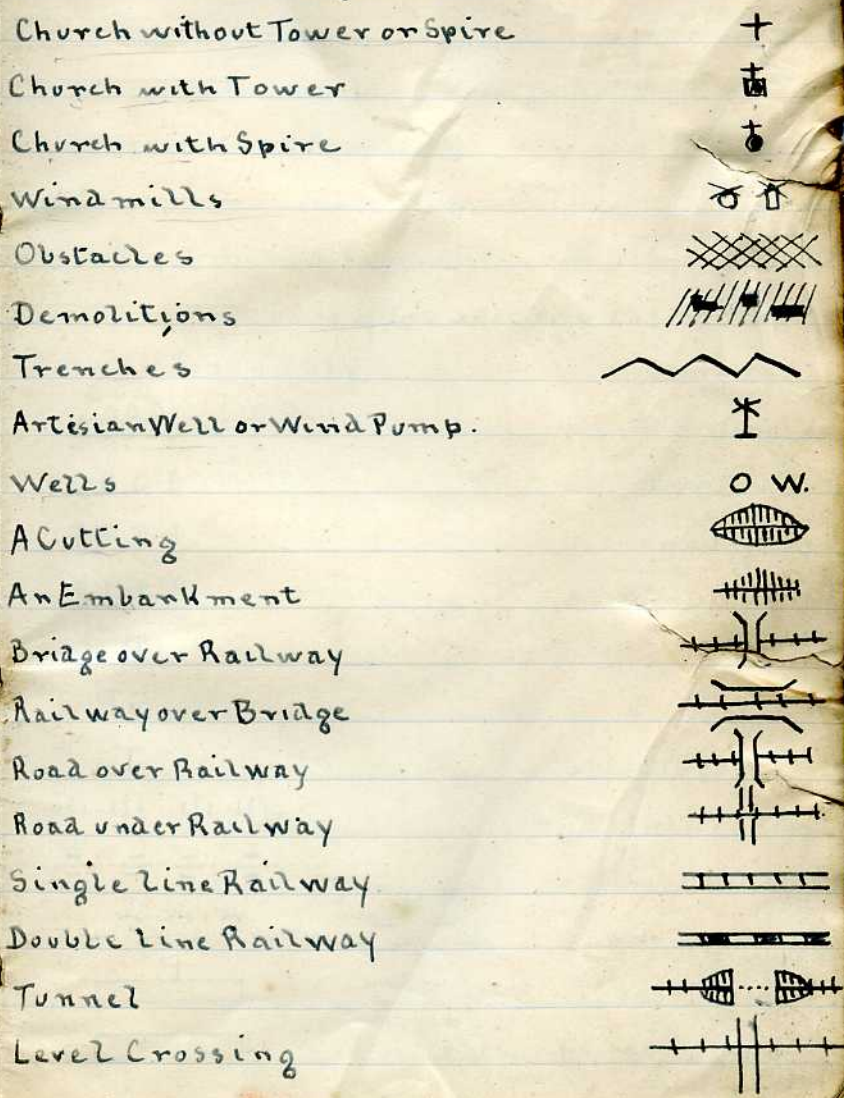 Church without Tower or Spire
Church with Tower
Church with Spire
Windmills
Obstacles
Demolitions
Trenches
Artesian Well or Wind Pump.
Wells O W.
A Cutting
An Embankment
Bridge over Railway
Railway over Bridge
Road over Railway
Road under Railway
Single Line Railway
Double Line Railway
Tunnel
Level Crossing